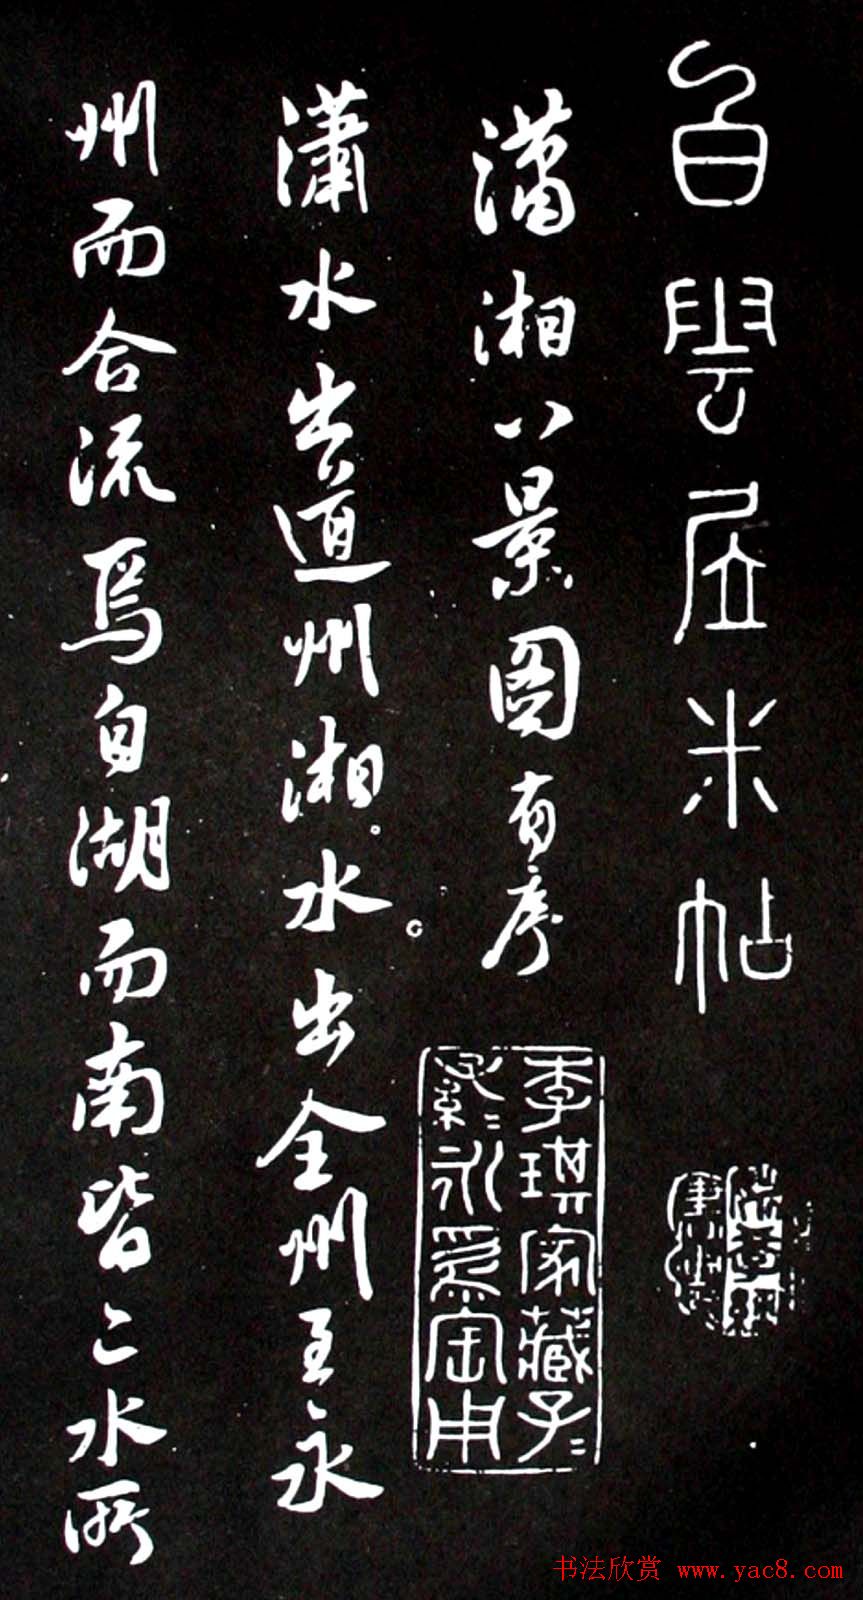 白雲居米帖
瀟湘八景圖有序
季琪家藏子〻
孫〻永為寶用
瀟水出道州湘水出全州至永
州而合流焉自湖而南皆二水所
书法欣赏 www.yac8.com